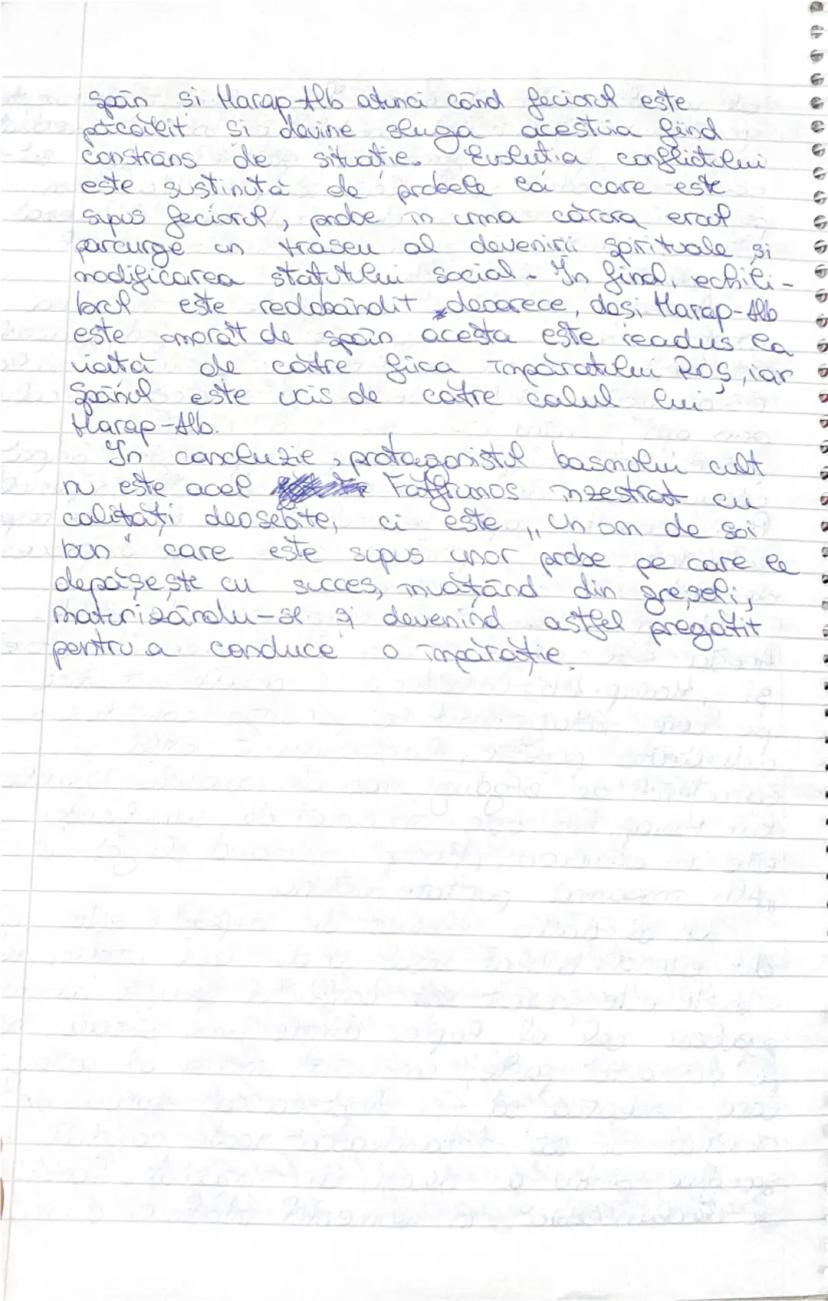 spân si Harap-Alb atunci când feciorul este
păcălit si devine sluga acestuia fiind
constrâns de situatie. Evolutia conflictului
este sustinută de probele la care este
supus feciorul, probe în urma cărora eroul
parcurge un traseu al devenirii spirituale si
modificarea statutului social. În final, echili-
brul este redobândit, deoarece, desi Harap-Alb
este omorât de spân acesta este readus la
viată de către fiica împăratului Roș, iar
Spânul este ucis de către calul lui
Harap-Alb.
În concluzie, protagonistul basmului cult
nu este acel Fătfrumos înzestrat cu
calități deosebite, ci este „un om de soi
bun" care este supus unor probe pe care le
depășește cu succes, învățând din greșeli,
maturizându-se și devenind astfel pregătit
pentru a conduce o împărăție.